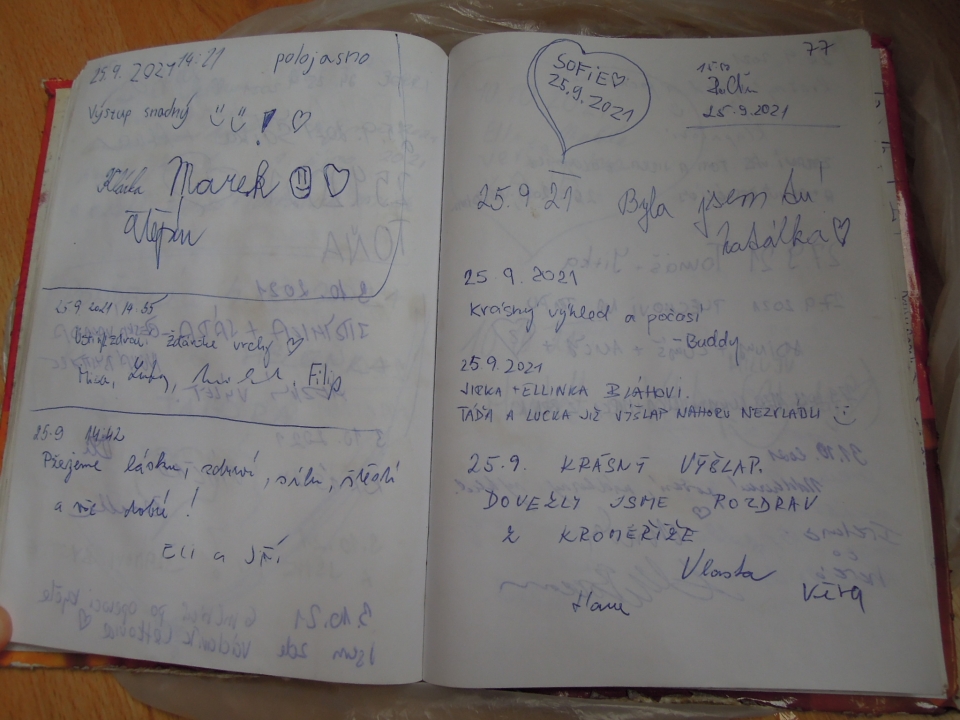 25.9. 2021 14:21 polojasno
Výstup snadný
Klára Marek
Štěpán
25.9 2021 14:35
Ždánské vrchy
Filip
25.9 14:42
Přejeme lásku, zdraví, sílu, štěstí
a vše dobré!
Eli a Jiří
77
SOFIE
25.9.2021
25.9.2021
25.9 21 Byla jsem tu
Natálka
25.9.2021
Krásný výhled a počasí
- Buddy
25.9.2021
JIRKA + ELLINKA BLÁHOVI.
TÁĎA A LUCKA JIŽ VÝŠLAP NAHORU NEZVLÁDLI
25.9. KRÁSNÝ VÝŠLAP.
DOVEZLY JSME POZDRAV
Z KROMĚŘÍŽE
Vlasta
Hana Věra